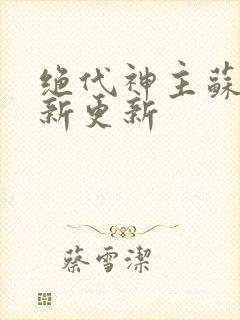 绝代神主蘇
新更新
蔡雪潔